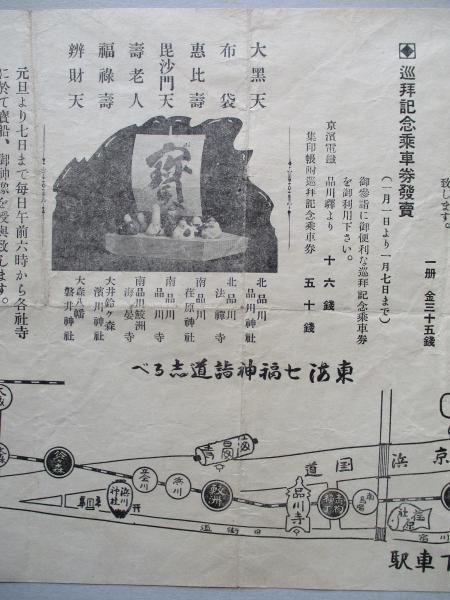 致します。
一冊 金三十五錢
巡拜記念乘車券發賣
（一月一日より一月七日まで）
御參詣に御便利な巡拜記念乘車券
を御利用下さい。
京濱電鐵 品川驛より 十六錢
集印帳附巡拜記念乘車券 五十錢
大黑天
布袋
惠比壽
毘沙門天
壽老人
福祿壽
辨財天
寶
北品川 品川神社
北品川 法禪寺
南品川 荏原神社
南品川 品川寺
南品川鮫洲 海晏寺
大井鈴ケ森 濱川神社
大森八幡 磐井神社
元旦より七日まで毎日午前六時から各社寺
に於て寶船、御神像を授與致します。
東海七福神詣道志るべ
京濱国道
鮫洲
濱川
立会川
濱川神社
品川寺
旧街道
下車駅